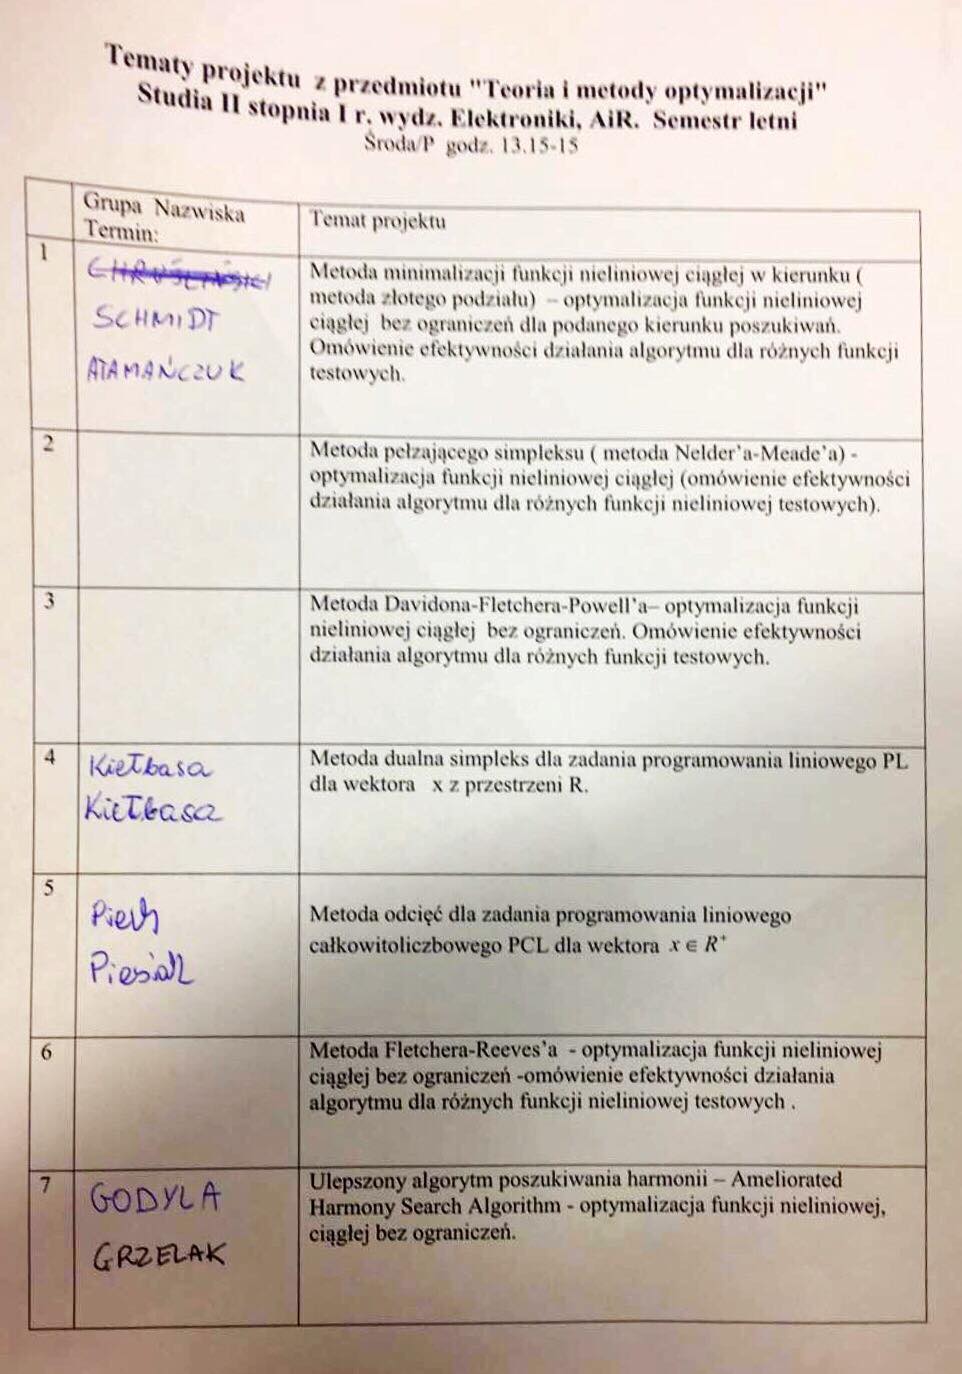 Tematy projektu z przedmiotu "Teoria i metody optymalizacji"
Studia II stopnia I r. wydz. Elektroniki, AiR. Semestr letni
Środa/P godz. 13.15-15
Grupa Nazwiska
Termin:
Temat projektu
1
SCHMIDT
ATAMAŃCZUK
Metoda minimalizacji funkcji nieliniowej ciągłej w kierunku (
metoda złotego podziału) – optymalizacja funkcji nieliniowej
ciągłej bez ograniczeń dla podanego kierunku poszukiwań.
Omówienie efektywności działania algorytmu dla różnych funkcji
testowych.
2
Metoda pełzającego simpleksu ( metoda Nelder’a-Meade’a) -
optymalizacja funkcji nieliniowej ciągłej (omówienie efektywności
działania algorytmu dla różnych funkcji nieliniowej testowych).
3
Metoda Davidona-Fletchera-Powell’a– optymalizacja funkcji
nieliniowej ciągłej bez ograniczeń. Omówienie efektywności
działania algorytmu dla różnych funkcji testowych.
4
Kiełbasa
Kiełbasa
Metoda dualna simpleks dla zadania programowania liniowego PL
dla wektora x z przestrzeni R.
5
Piech
Piesiak
Metoda odcięć dla zadania programowania liniowego
całkowitoliczbowego PCL dla wektora x ∈ R⁺
6
Metoda Fletchera-Reeves’a - optymalizacja funkcji nieliniowej
ciągłej bez ograniczeń -omówienie efektywności działania
algorytmu dla różnych funkcji nieliniowej testowych .
7
GODYLA
GRZELAK
Ulepszony algorytm poszukiwania harmonii – Ameliorated
Harmony Search Algorithm - optymalizacja funkcji nieliniowej,
ciągłej bez ograniczeń.